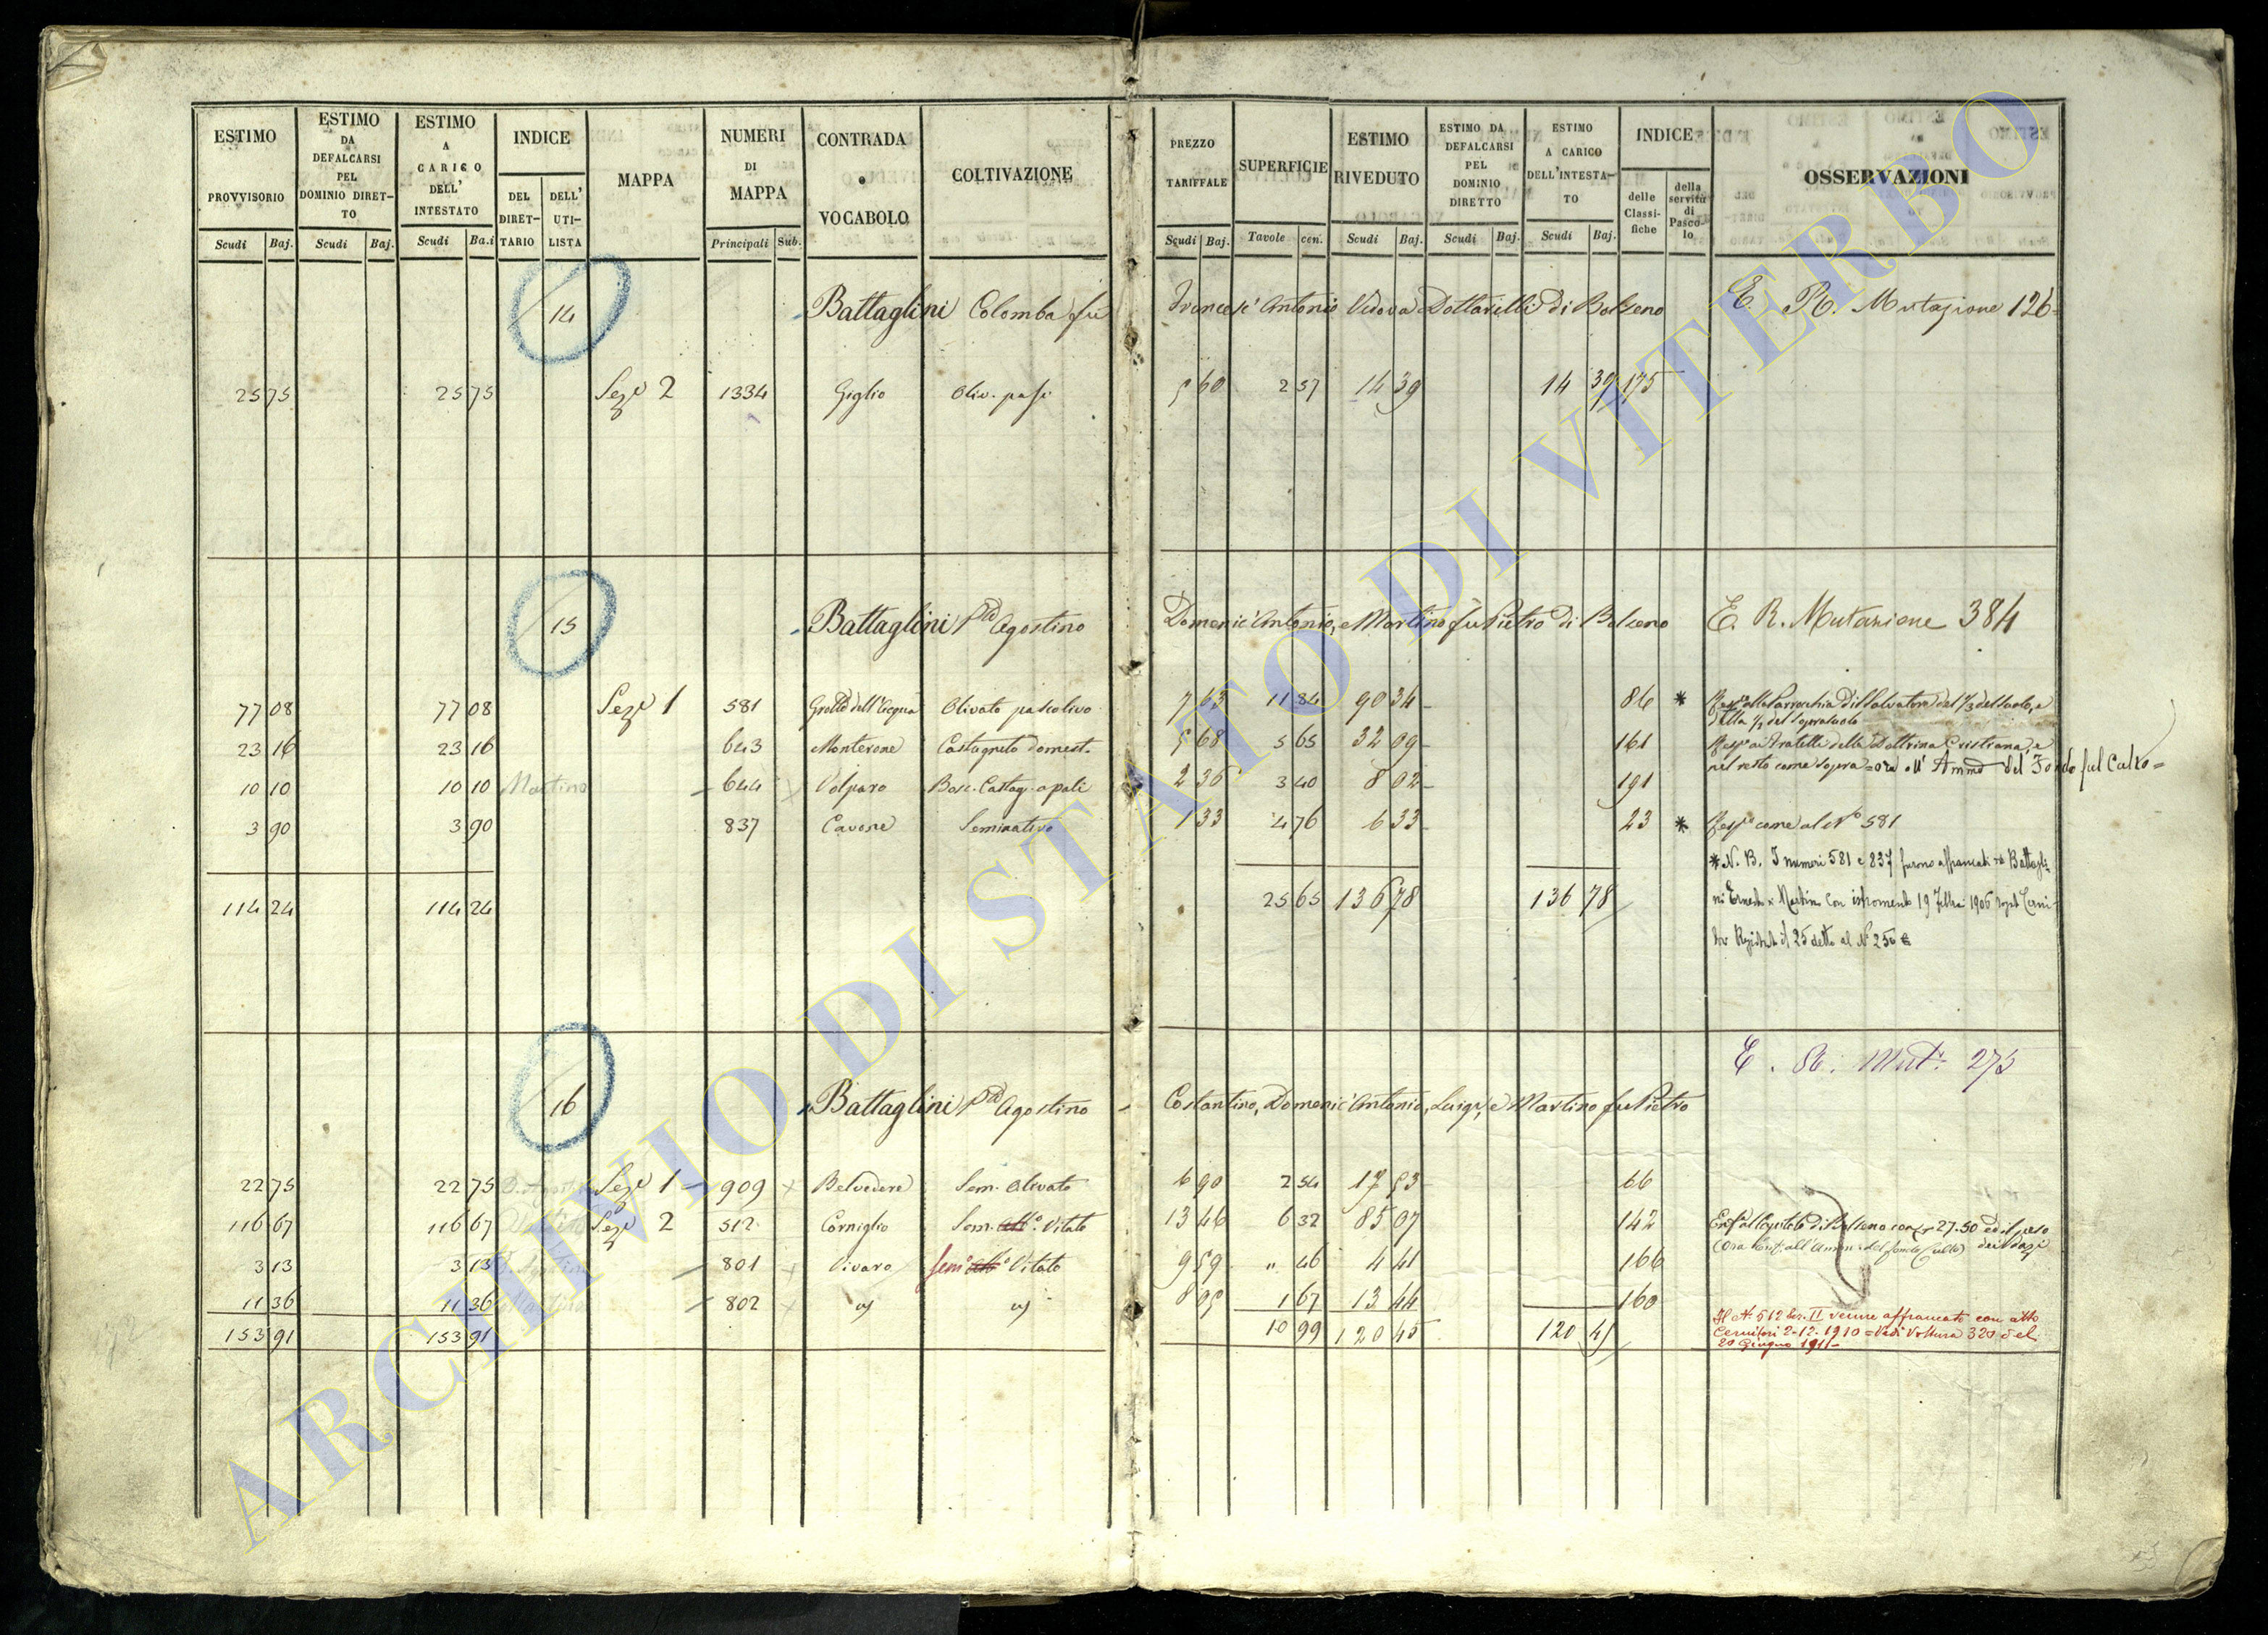 ESTIMO PROVVISORIO Scudi Baj.
ESTIMO DA DEFALCARSI PEL DOMINIO DIRET-TO Scudi Baj.
ESTIMO A CARICO DELL' INTESTATO Scudi Ba.i
INDICE DEL DIRET-TARIO DELL' UTI-LISTA
MAPPA
NUMERI DI MAPPA Principali Sub.
CONTRADA o VOCABOLO
COLTIVAZIONE
PREZZO TARIFFALE Scudi Baj.
SUPERFICIE Tavole cen.
ESTIMO RIVEDUTO Scudi Baj.
ESTIMO DA DEFALCARSI PEL DOMINIO DIRETTO Scudi Baj.
ESTIMO A CARICO DELL'INTESTA-TO Scudi Baj.
INDICE delle Classi-fiche della servitù di Pasco-lo
OSSERVAZIONI
14 Battaglini Colomba fu Francesc'Antonio Vedova Dottarelli di Bolseno E. R. Mutazione 126
25 75 25 75 Sez.e 2 1334 Giglio Oliv. pasc. 5 60 2 57 14 39 14 39 175
15 Battaglini P.d Agostino Domenic'Antonio, e Martino fu Pietro di Bolseno E. R. Mutazione 384
77 08 77 08 Sez.e 1 581 Grotta dell'Acqua Olivato pascolivo 7 63 11 84 90 34 86 * Resp.a alla Parrocchia di S. Salvatore del 1/3 del suolo, e
della 1/5 del soprasuolo
23 16 23 16 643 Monterone Castagneto domest. 5 68 5 65 32 09 161 Resp.o ai Fratelli della Dottrina Cristiana, e
nel resto come sopra = ora all' Amm.e del Fondo pel Culto =
10 10 10 10 Martino 644 Volparo Bosc. Castag. a pali 2 36 3 40 8 02 191
3 90 3 90 837 Cavone Seminativo 1 33 4 76 6 33 23 * Resp.a come al N.o 581
* N. B. I numeri 581 e 837 furono affrancati da Battagli-
ni Ernesto e Martino con istromento 19 7bre 1906
Registrato il 25 detto al N.o 250
114 24 114 24 25 65 136 78 136 78
E. R. Mut.e 275
16 Battaglini P.d Agostino Costantino, Domenic'Antonio, Luigi, e Martino fu Pietro
22 75 22 75 Sez.e 1 909 Belvedere Sem. Olivato 6 90 2 54 17 53 66
116 67 116 67 Sez.e 2 512 Corniglio Sem. Vitato 13 46 6 32 85 07 142 Enf. al Capitolo di Bolseno con 27.50 ed il peso
(Ora Enf. all'Amm. del fondo Culto) dei dazi
3 13 3 13 801 Vivaro Sem.o Vitato 9 59 " 46 4 41 166
11 36 11 36 Martino 802 8 05 1 67 13 44 160
153 91 153 91 10 99 120 45 120 45
Il N. 512 Sez. II venne affrancato con atto
Cernitori 2-12-1910 = Vedi Voltura 320 del
20 Giugno 1911 =
ARCHIVIO DI STATO DI VITERBO